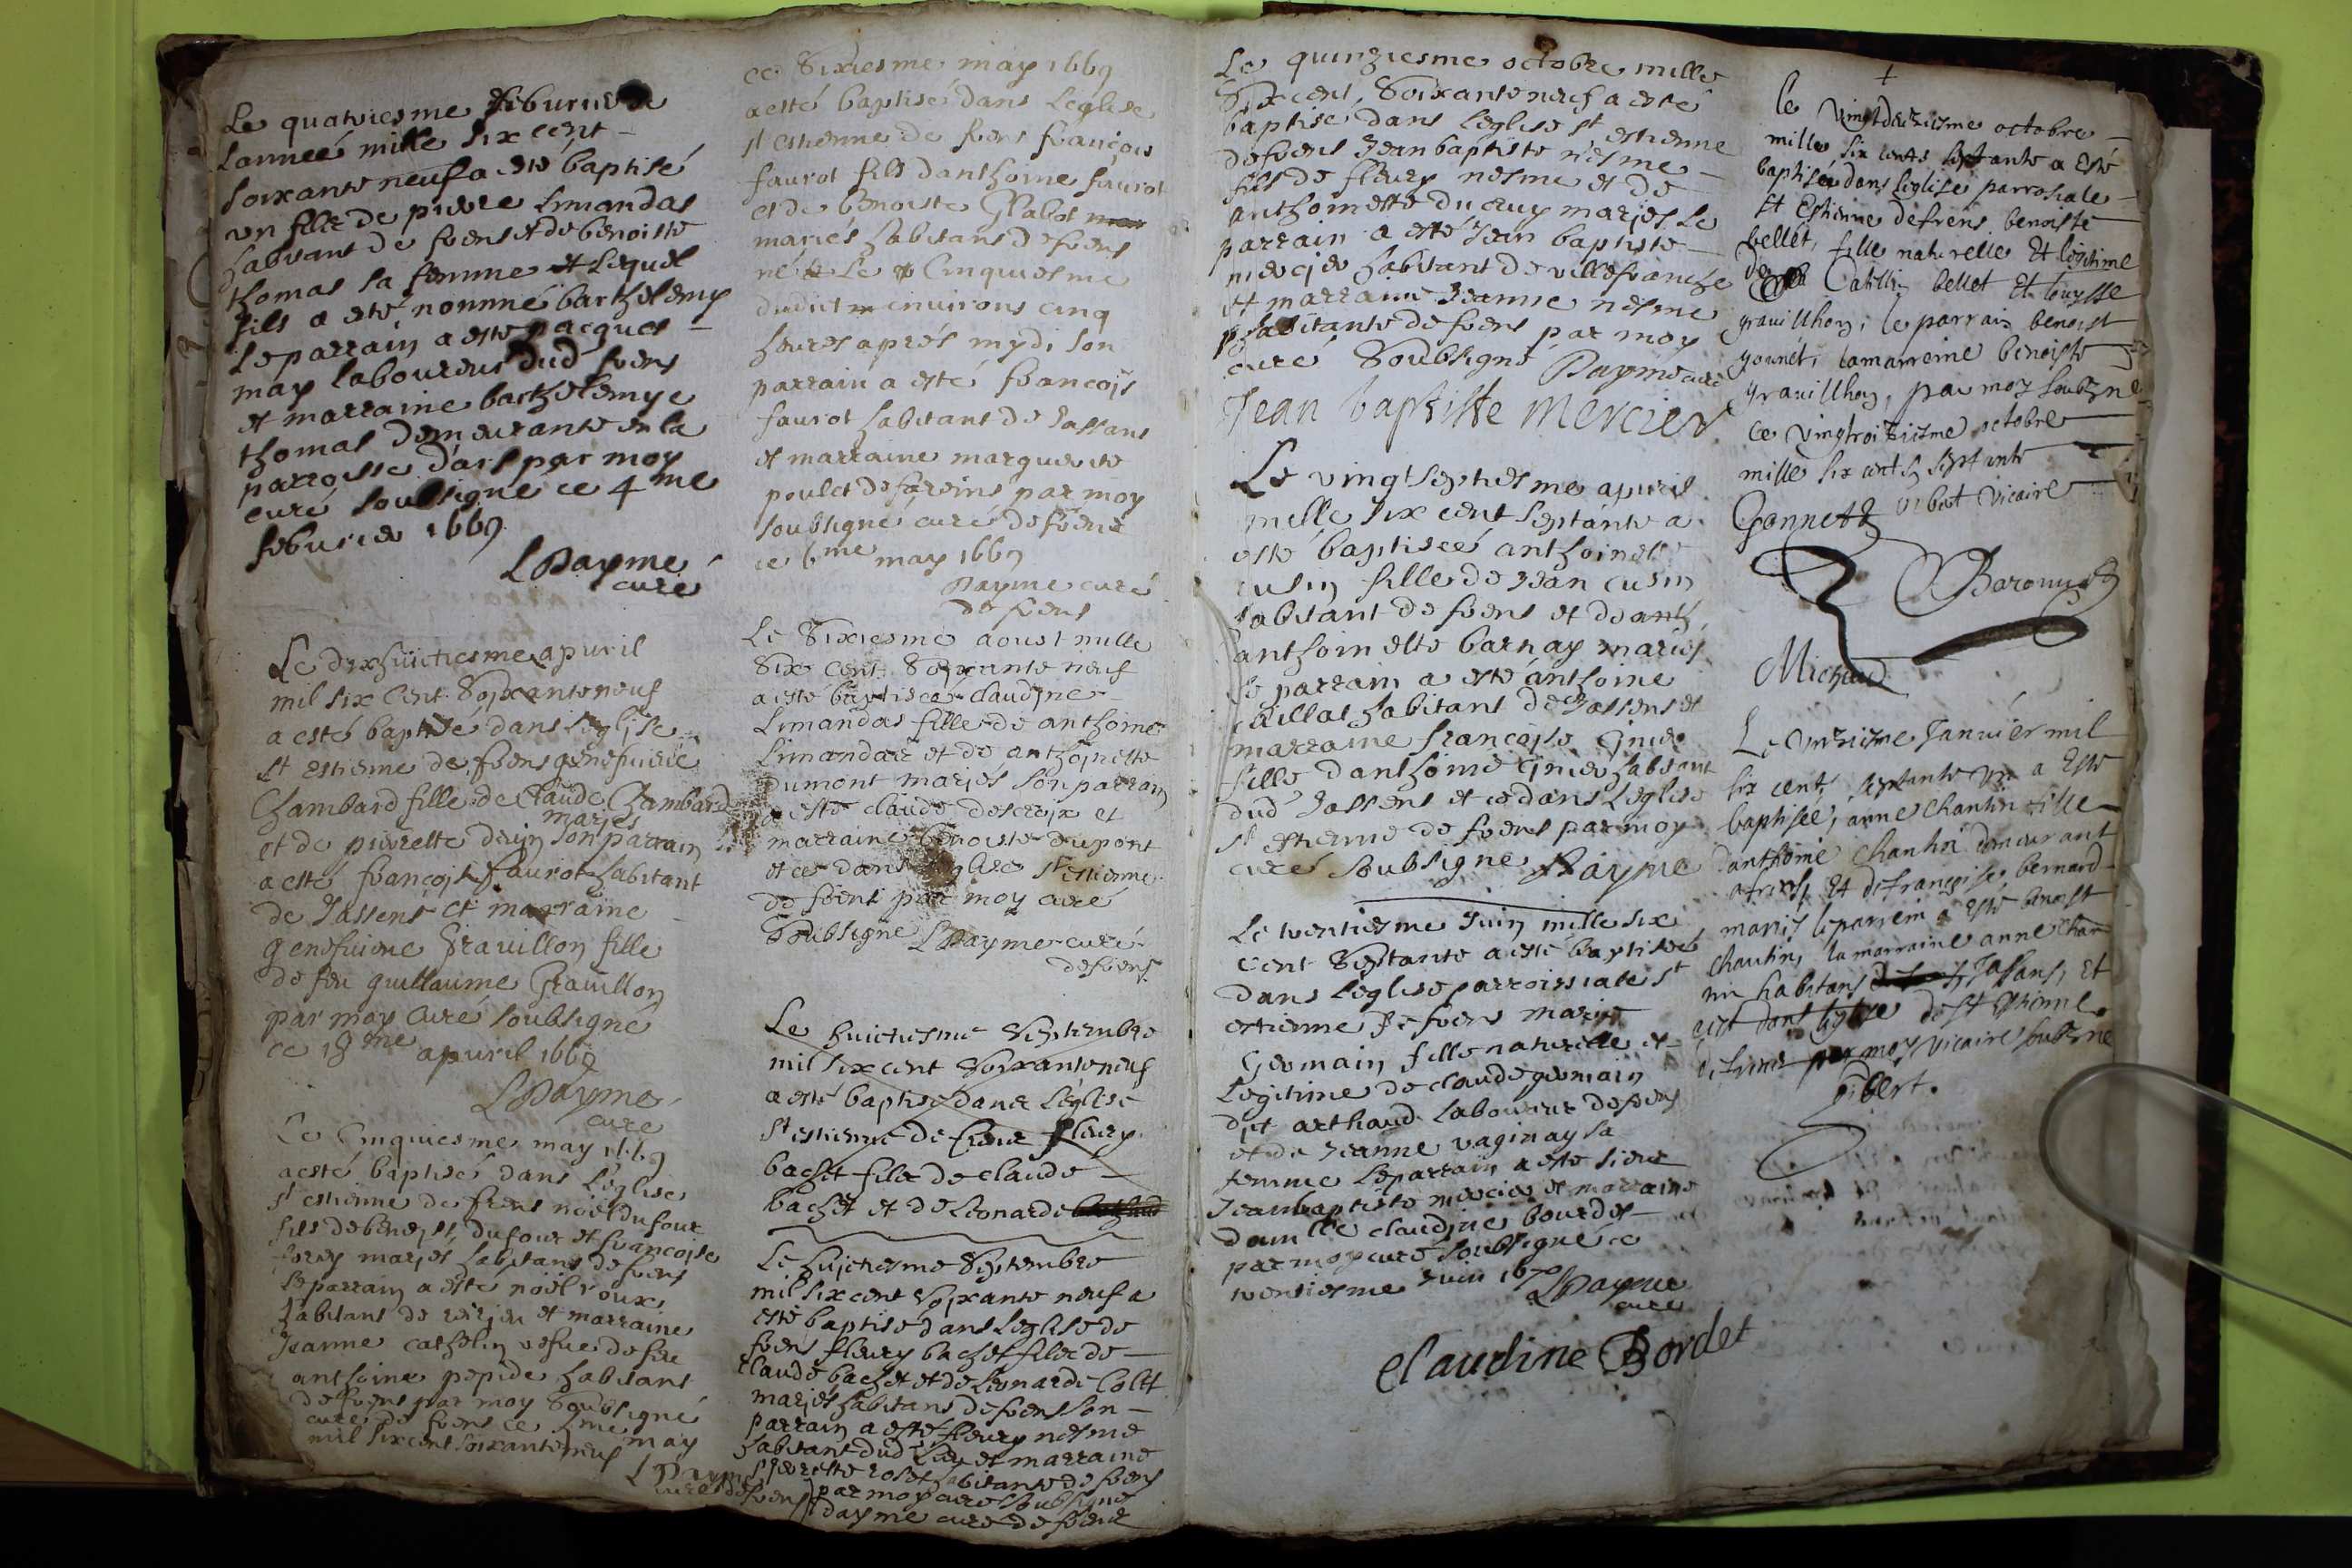 Le quatriesme feburier de
lanneé mille six cent
soixante neuf a esté baptisé
un filz de pierre limandas
habitant de frens et de benoiste
thomas sa femme et lequel
fils a esté nommé barthelemy
le parrain a esté jacques
may laboureur dud frens
et marraine barthelemye
thomas demeurante en la
parroisse d'ars par moy
curé soubsigne ce 4me
feburier 1669
LDayme
curé
Le dixhuictiesme apuril
mil six cent soixante neuf
a esté baptisé dans l'eglise
st estienne de frens genefuiere
Chambard fille de Claude Chambard
mariés
et de pierrette son parrain
a esté françois faurot habitant
de Jassens et marraine
genefuieue Grauillon fille
de feu guillaume Grauillon
par moy curé soubsigné
ce 18me apuril 1669
LDayme
curé
Le Cinquiesme may 1669
a esté baptisé dans L'eglise
st estienne de frens noël dufour
fils de benoist dufour et françoise
mariés habitans de frens
le parrain a esté noël roux
habitant de et marraine
Jeanne cathelin vefue de feu
anthoine habitant
de frens par moy soubsigné
curé de frens ce 5me may
mil six cent soixante neuf
LDayme
curé de frens
ce sixiesme may 1669
a esté baptisé dans Leglise
st estienne de frens françois
faurot fils danthoine faurot
et de benoiste Glabot
mariés habitans de frens
né le Cinquiesme
dudict environs cinq
heures aprés mydi son
parrain a esté françois
faurot habitant de Jassans
et marraine marguerite
poulet de fareins par moy
soubsigné curé de frens
ce 6me may 1669
Dayme curé
de frens
Le sixiesme aoust mille
six cent soixante neuf
a esté baptiseé claudine
Limandas fille de anthoine
limandas et de anthoinette
dumont mariés son parrain
a esté claude descroix et
marraine benoiste dupont
et ce dans leglise st estienne
de frens par moy curé
soubsigne LDayme curé
de frens
Le huictiesme septembre
mil six cent soixante neuf
a esté baptisé dans L'eglise
st estienne de frens fleury
bachet filz de claude
bachet et de Leonarde
Le huictiesme septembre
mil six cent soixante neuf a
esté baptisé dans L'eglise de
frens fleury bachet filz de
claude bachet et de Leonarde Colet
mariés habitans de frens son
parrain a esté fleury nesme
habitant dud lieu et marraine
pierrette rolet habitante de frens
par moy curé soubsigné
Dayme curé de frens
Le quinziesme octobre mille
six cent soixante neuf a esté
baptisé dans leglise st estienne
de frens Jean baptiste nesme
fils de fleury nesme et de
anthoinette ducruy mariés Le
parrain a esté Jean baptiste
mercier habitant de villefranche
et marraine Jeanne nesme
habitante de frens par moy
curé soubsigné Dayme curé
Jean baptiste Mercier
Le vingt septiesme apuril
mille six cent septante a
esté baptiseé anthoinette
cusin fille de Jean cusin
habitant de frens et de anth
anthoinette barnay mariés
le parrain a esté anthoine
habitant de Jassens et
marraine françoise
fille danthoine habitant
dud Jassens et ce dans Leglise
st estienne de frens par moy
curé soubsigne Dayme
Le ventiesme Juin mille six
cent septante a esté baptiseé
dans Leglise parroissiale st
estienne de frens marie
Germain fille naturelle et
Legitime de claude germain
dit arthaud laboureur de frens
et de Jeanne vaginay sa
femme Le parrain a esté sieur
Jean baptiste mercier et marraine
damlle claudine bourdet
par moy curé soubsigné ce
ventiesme Juin 1670
LDayme
curé
Claudine Bordet
le vingtdeuziesme octobre
mille six cents septante a Esté
baptiséé dans leglise parrosiale
st Estienne defrens benoiste
bellet, fille naturelle Et legitime
de Catellin bellet Et louysse
grauillhon, le parrain benoist
gonnet, la marreine benoiste
grauillhon, par moy soubzne
ce vingtroiziesme octobre
mille six cents septante
Gonnet vibert vicaire
Baronnet
Michaud
Le Onziesme Januiér mil
six cent septante vn a Esté
baptiséé, anne Chantin fille
danthoine Chantin demeurant
a frens, Et de françoise bernard
mariés le parrein a Esté benoist
Chantin, la marraine anne Chan
tin habitans Jassans, Et
dans leglise de st Estienne
de frens par moy vicaire soubzne
vibert.